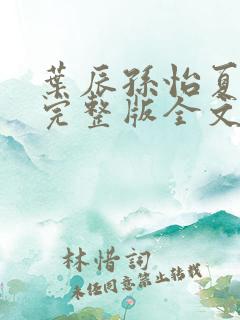 葉辰孫怡夏
完整版全文
林惜詞
未经同意禁止转载